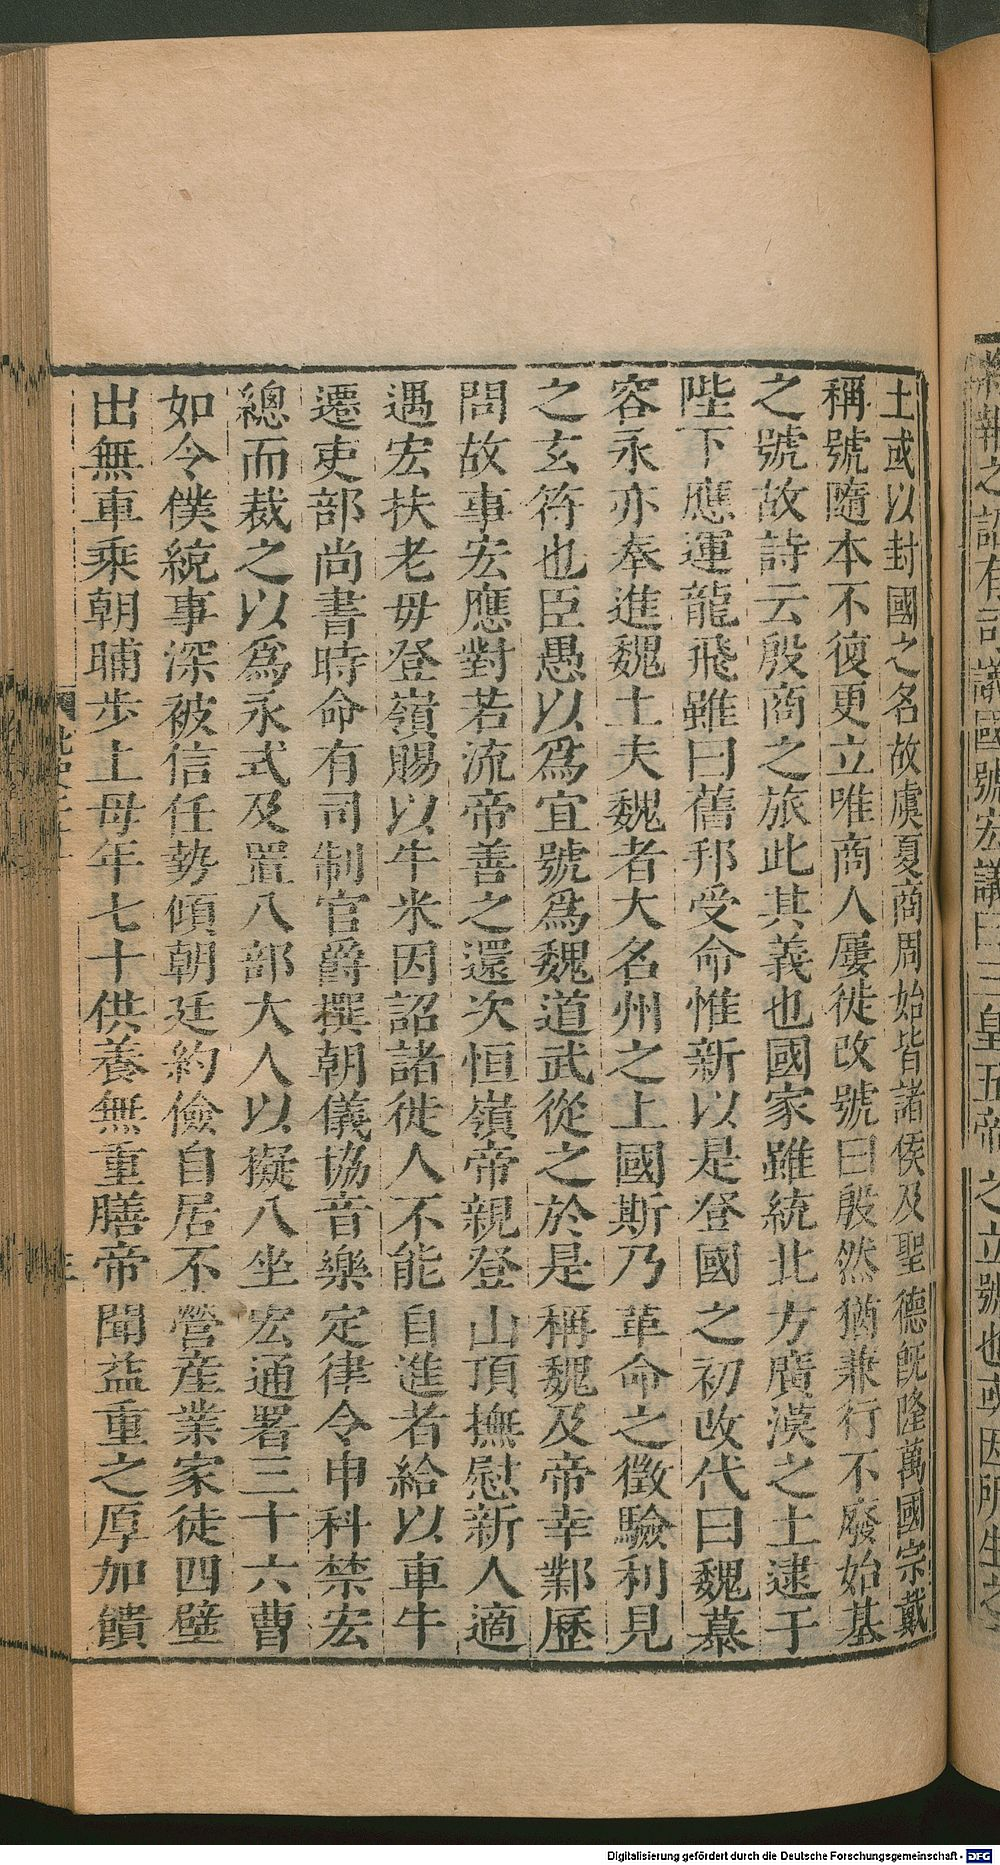 土或以封國之名故虞夏商周始皆諸侯及聖德旣隆萬國宗戴
稱號隨本不復更立唯商人屢徙改號曰殷然猶兼行不廢始基
之號故詩云殷商之旅此其義也國家雖統北方廣漠之土逮于
陛下應運龍飛雖曰舊邦受命惟新以是登國之初改代曰魏慕
容永亦奉進魏土夫魏者大名州之上國斯乃革命之徵驗利見
之玄符也臣愚以爲宜號爲魏道武從之於是稱魏及帝幸鄴歷
問故事宏應對若流帝善之還次恒嶺帝親登山頂撫慰新人適
遇宏扶老母登嶺賜以牛米因詔諸徙人不能自進者給以車牛
遷吏部尚書時命有司制官爵撰朝儀協音樂定律令申科禁宏
總而裁之以爲永式及置八部大人以擬八坐宏通署三十六曹
如令僕統事深被信任勢傾朝廷約儉自居不營産業家徒四壁
出無車乘朝晡步上母年七十供養無重膳帝聞益重之厚加饋
之詔有司議國號宏議曰三皇五帝之立號也或因所生之
Digitalisierung gefördert durch die Deutsche Forschungsgemeinschaft - DFG